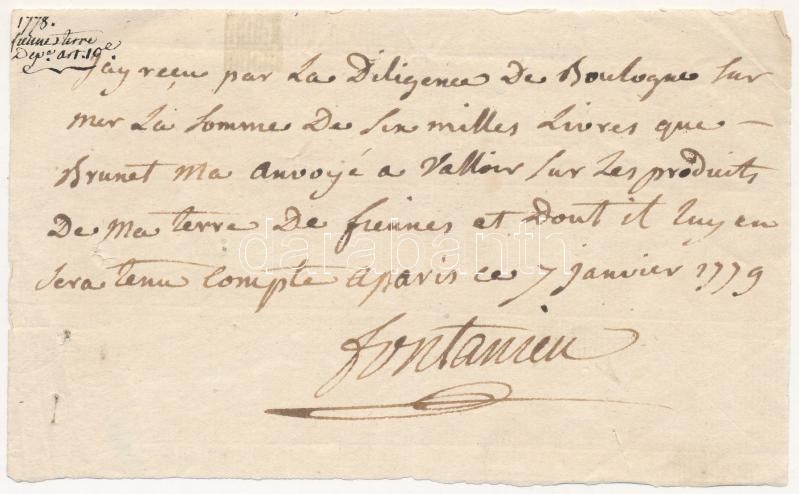 1778.
fienne terre
Depe art. 19e
J'ay reçu par La Diligence De Boulogne sur
mer La somme De six milles Livres que —
Brunet Ma anvoyé a Valloir sur Les produits
De Ma terre De fiennes et Dont il luy en
sera tenu Compte a paris ce 7 janvier 1779
fontanieu
darabanth